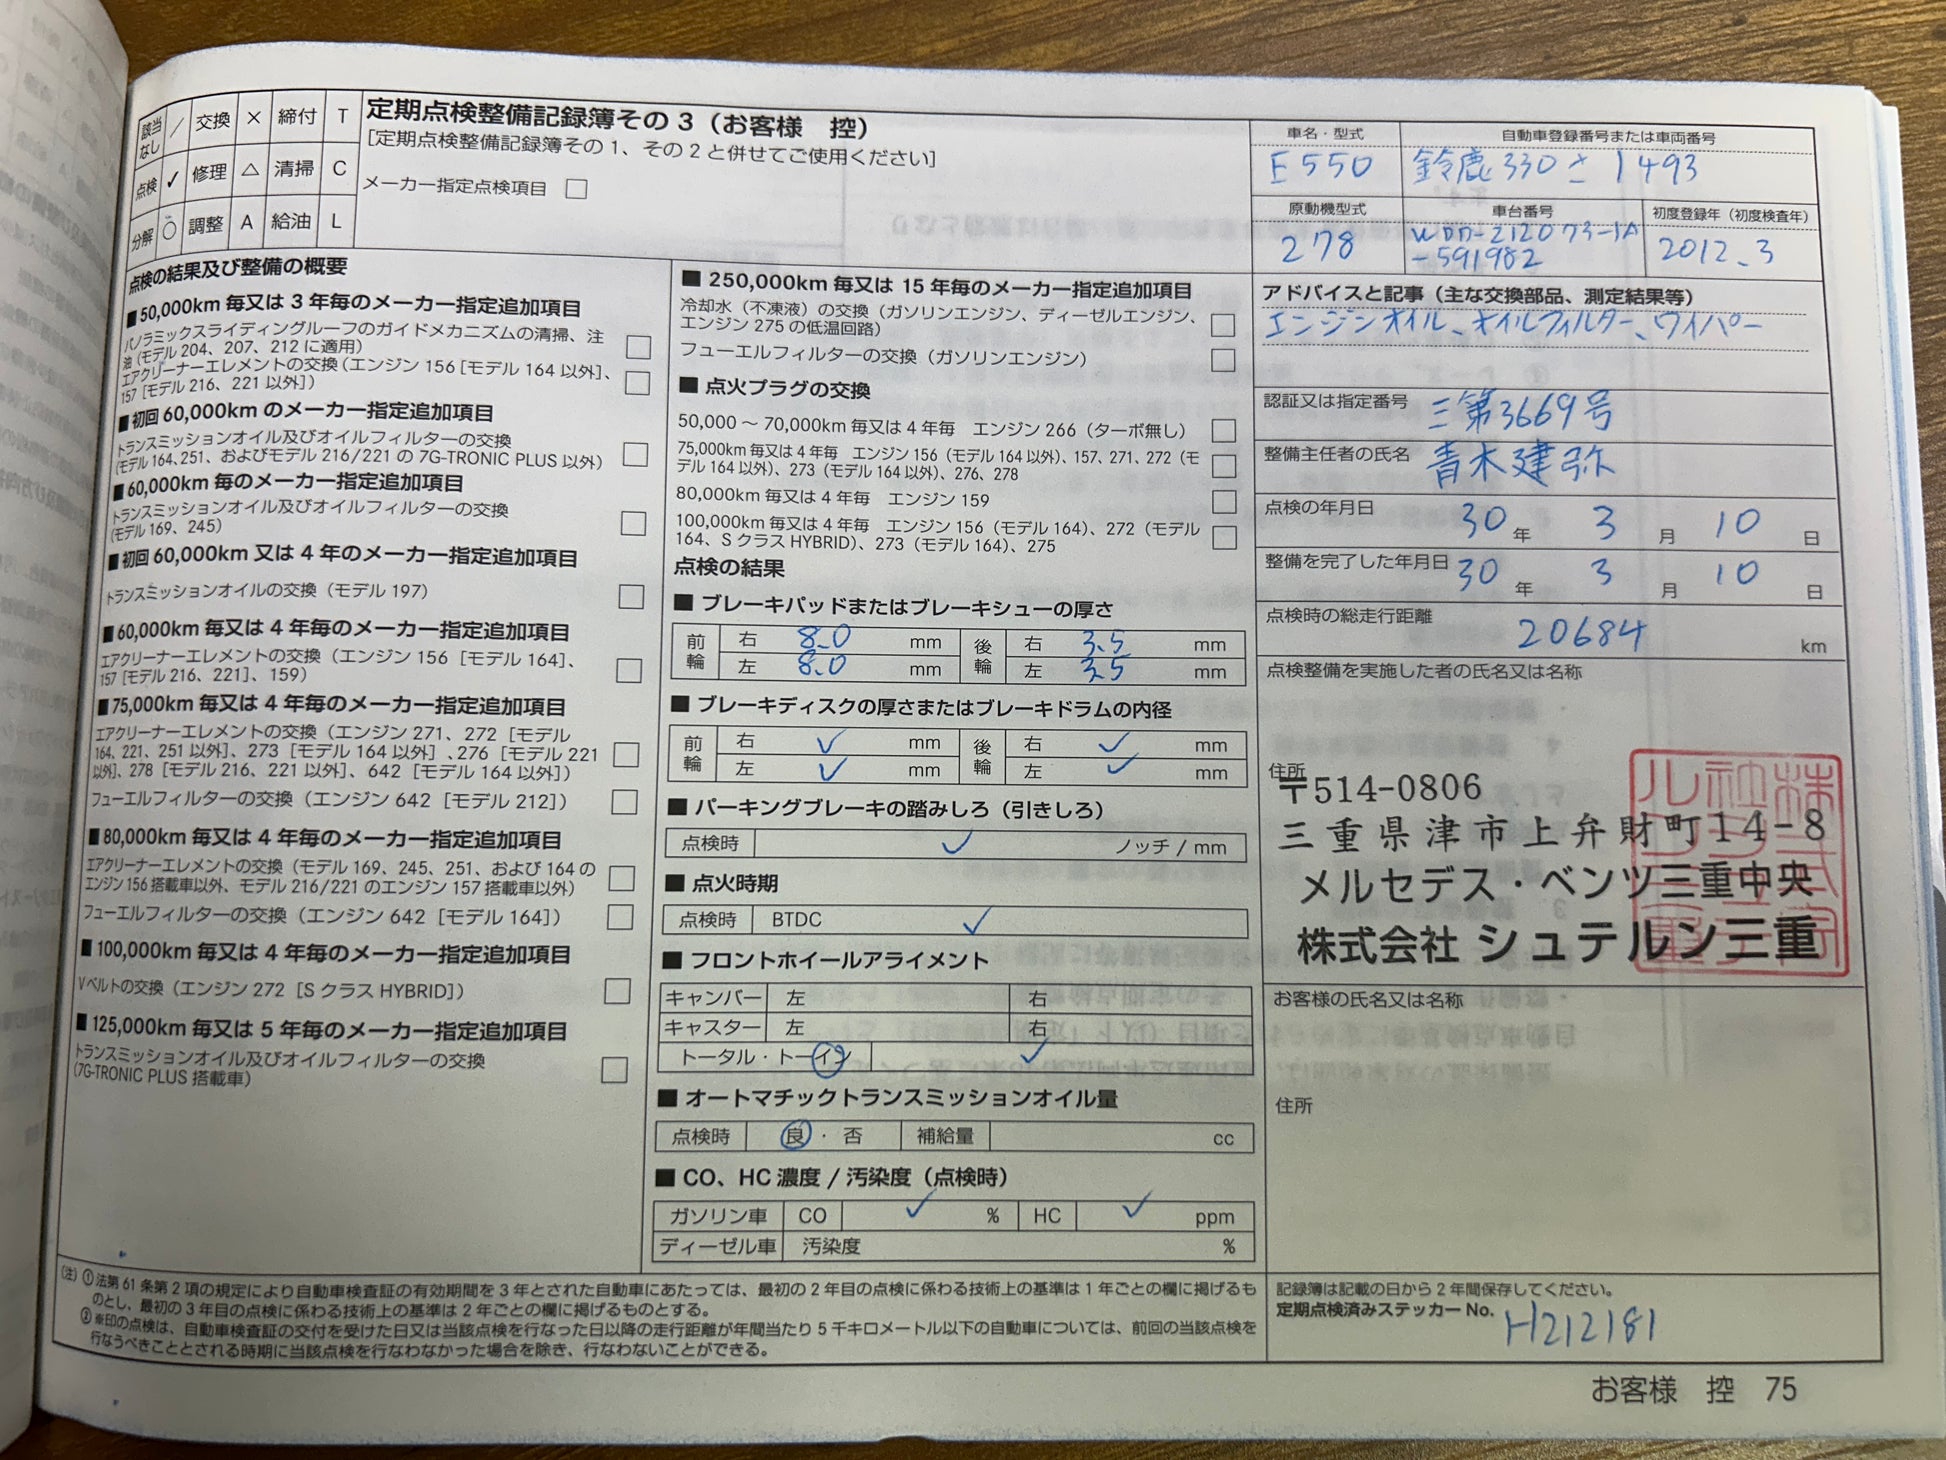 該当なし / 交換 × 締付 T
点検 ✓ 修理 △ 清掃 C
分解 ○ 調整 A 給油 L
定期点検整備記録簿その3（お客様 控）
[定期点検整備記録簿その1、その2と併せてご使用ください]
メーカー指定点検項目 □
車名・型式
E550
自動車登録番号または車両番号
鈴鹿330 さ 1493
原動機型式
278
車台番号
WDD-212073-1A
-591982
初度登録年（初度検査年）
2012.3
点検の結果及び整備の概要
■50,000km 毎又は 3 年毎のメーカー指定追加項目
パノラミックスライディングルーフのガイドメカニズムの清掃、注
油（モデル 204、207、212 に適用） □
エアクリーナーエレメントの交換（エンジン 156［モデル 164 以外］、
157［モデル 216、221 以外］） □
■初回 60,000km のメーカー指定追加項目
トランスミッションオイル及びオイルフィルターの交換
（モデル 164、251、およびモデル 216/221 の 7G-TRONIC PLUS 以外） □
■60,000km 毎のメーカー指定追加項目
トランスミッションオイル及びオイルフィルターの交換
（モデル 169、245） □
■初回 60,000km 又は 4 年のメーカー指定追加項目
トランスミッションオイルの交換（モデル 197） □
■60,000km 毎又は 4 年毎のメーカー指定追加項目
エアクリーナーエレメントの交換（エンジン 156［モデル 164］、
157［モデル 216、221］、159） □
■75,000km 毎又は 4 年毎のメーカー指定追加項目
エアクリーナーエレメントの交換（エンジン 271、272［モデル
164、221、251 以外］、273［モデル 164 以外］、276［モデル 221
以外］、278［モデル 216、221 以外］、642［モデル 164 以外］） □
フューエルフィルターの交換（エンジン 642［モデル 212］） □
■80,000km 毎又は 4 年毎のメーカー指定追加項目
エアクリーナーエレメントの交換（モデル 169、245、251、および 164 の
エンジン 156 搭載車以外、モデル 216/221 のエンジン 157 搭載車以外） □
フューエルフィルターの交換（エンジン 642［モデル 164］） □
■100,000km 毎又は 4 年毎のメーカー指定追加項目
V ベルトの交換（エンジン 272［S クラス HYBRID］） □
■125,000km 毎又は 5 年毎のメーカー指定追加項目
トランスミッションオイル及びオイルフィルターの交換
（7G-TRONIC PLUS 搭載車） □
■ 250,000km 毎又は 15 年毎のメーカー指定追加項目
冷却水（不凍液）の交換（ガソリンエンジン、ディーゼルエンジン、
エンジン 275 の低温回路） □
フューエルフィルターの交換（ガソリンエンジン） □
■ 点火プラグの交換
50,000 ～ 70,000km 毎又は 4 年毎 エンジン 266（ターボ無し） □
75,000km 毎又は 4 年毎 エンジン 156（モデル 164 以外）、157、271、272（モ
デル 164 以外）、273（モデル 164 以外）、276、278 □
80,000km 毎又は 4 年毎 エンジン 159 □
100,000km 毎又は 4 年毎 エンジン 156（モデル 164）、272（モデル
164、S クラス HYBRID）、273（モデル 164）、275 □
点検の結果
■ ブレーキパッドまたはブレーキシューの厚さ
前輪 右 8.0 mm 後輪 右 3.5 mm
左 8.0 mm 左 3.5 mm
■ ブレーキディスクの厚さまたはブレーキドラムの内径
前輪 右 ✓ mm 後輪 右 ✓ mm
左 ✓ mm 左 ✓ mm
■ パーキングブレーキの踏みしろ（引きしろ）
点検時 ✓ ノッチ / mm
■ 点火時期
点検時 BTDC ✓
■ フロントホイールアライメント
キャンバー 左 右
キャスター 左 右
トータル・トーイン ✓
■ オートマチックトランスミッションオイル量
点検時 良 ・ 否 補給量 cc
■ CO、HC 濃度 / 汚染度（点検時）
ガソリン車 CO ✓ % HC ✓ ppm
ディーゼル車 汚染度 %
アドバイスと記事（主な交換部品、測定結果等）
エンジンオイル、オイルフィルター、ワイパー
認証又は指定番号 三第3669号
整備主任者の氏名 青木建弥
点検の年月日 30 年 3 月 10 日
整備を完了した年月日 30 年 3 月 10 日
点検時の総走行距離 20684 km
点検整備を実施した者の氏名又は名称
住所
〒514-0806
三重県津市上弁財町14-8
メルセデス・ベンツ三重中央
株式会社 シュテルン三重
お客様の氏名又は名称
住所
（注）① 法第 61 条第 2 項の規定により自動車検査証の有効期間を 3 年とされた自動車にあたっては、最初の 2 年目の点検に係わる技術上の基準は 1 年ごとの欄に掲げるも
のとし、最初の 3 年目の点検に係わる技術上の基準は 2 年ごとの欄に掲げるものとする。
② ※印の点検は、自動車検査証の交付を受けた日又は当該点検を行なった日以降の走行距離が年間当たり 5 千キロメートル以下の自動車については、前回の当該点検を
行なうべきこととされる時期に当該点検を行なわなかった場合を除き、行なわないことができる。
記録簿は記載の日から 2 年間保存してください。
定期点検済みステッカー No. H212181
お客様 控 75